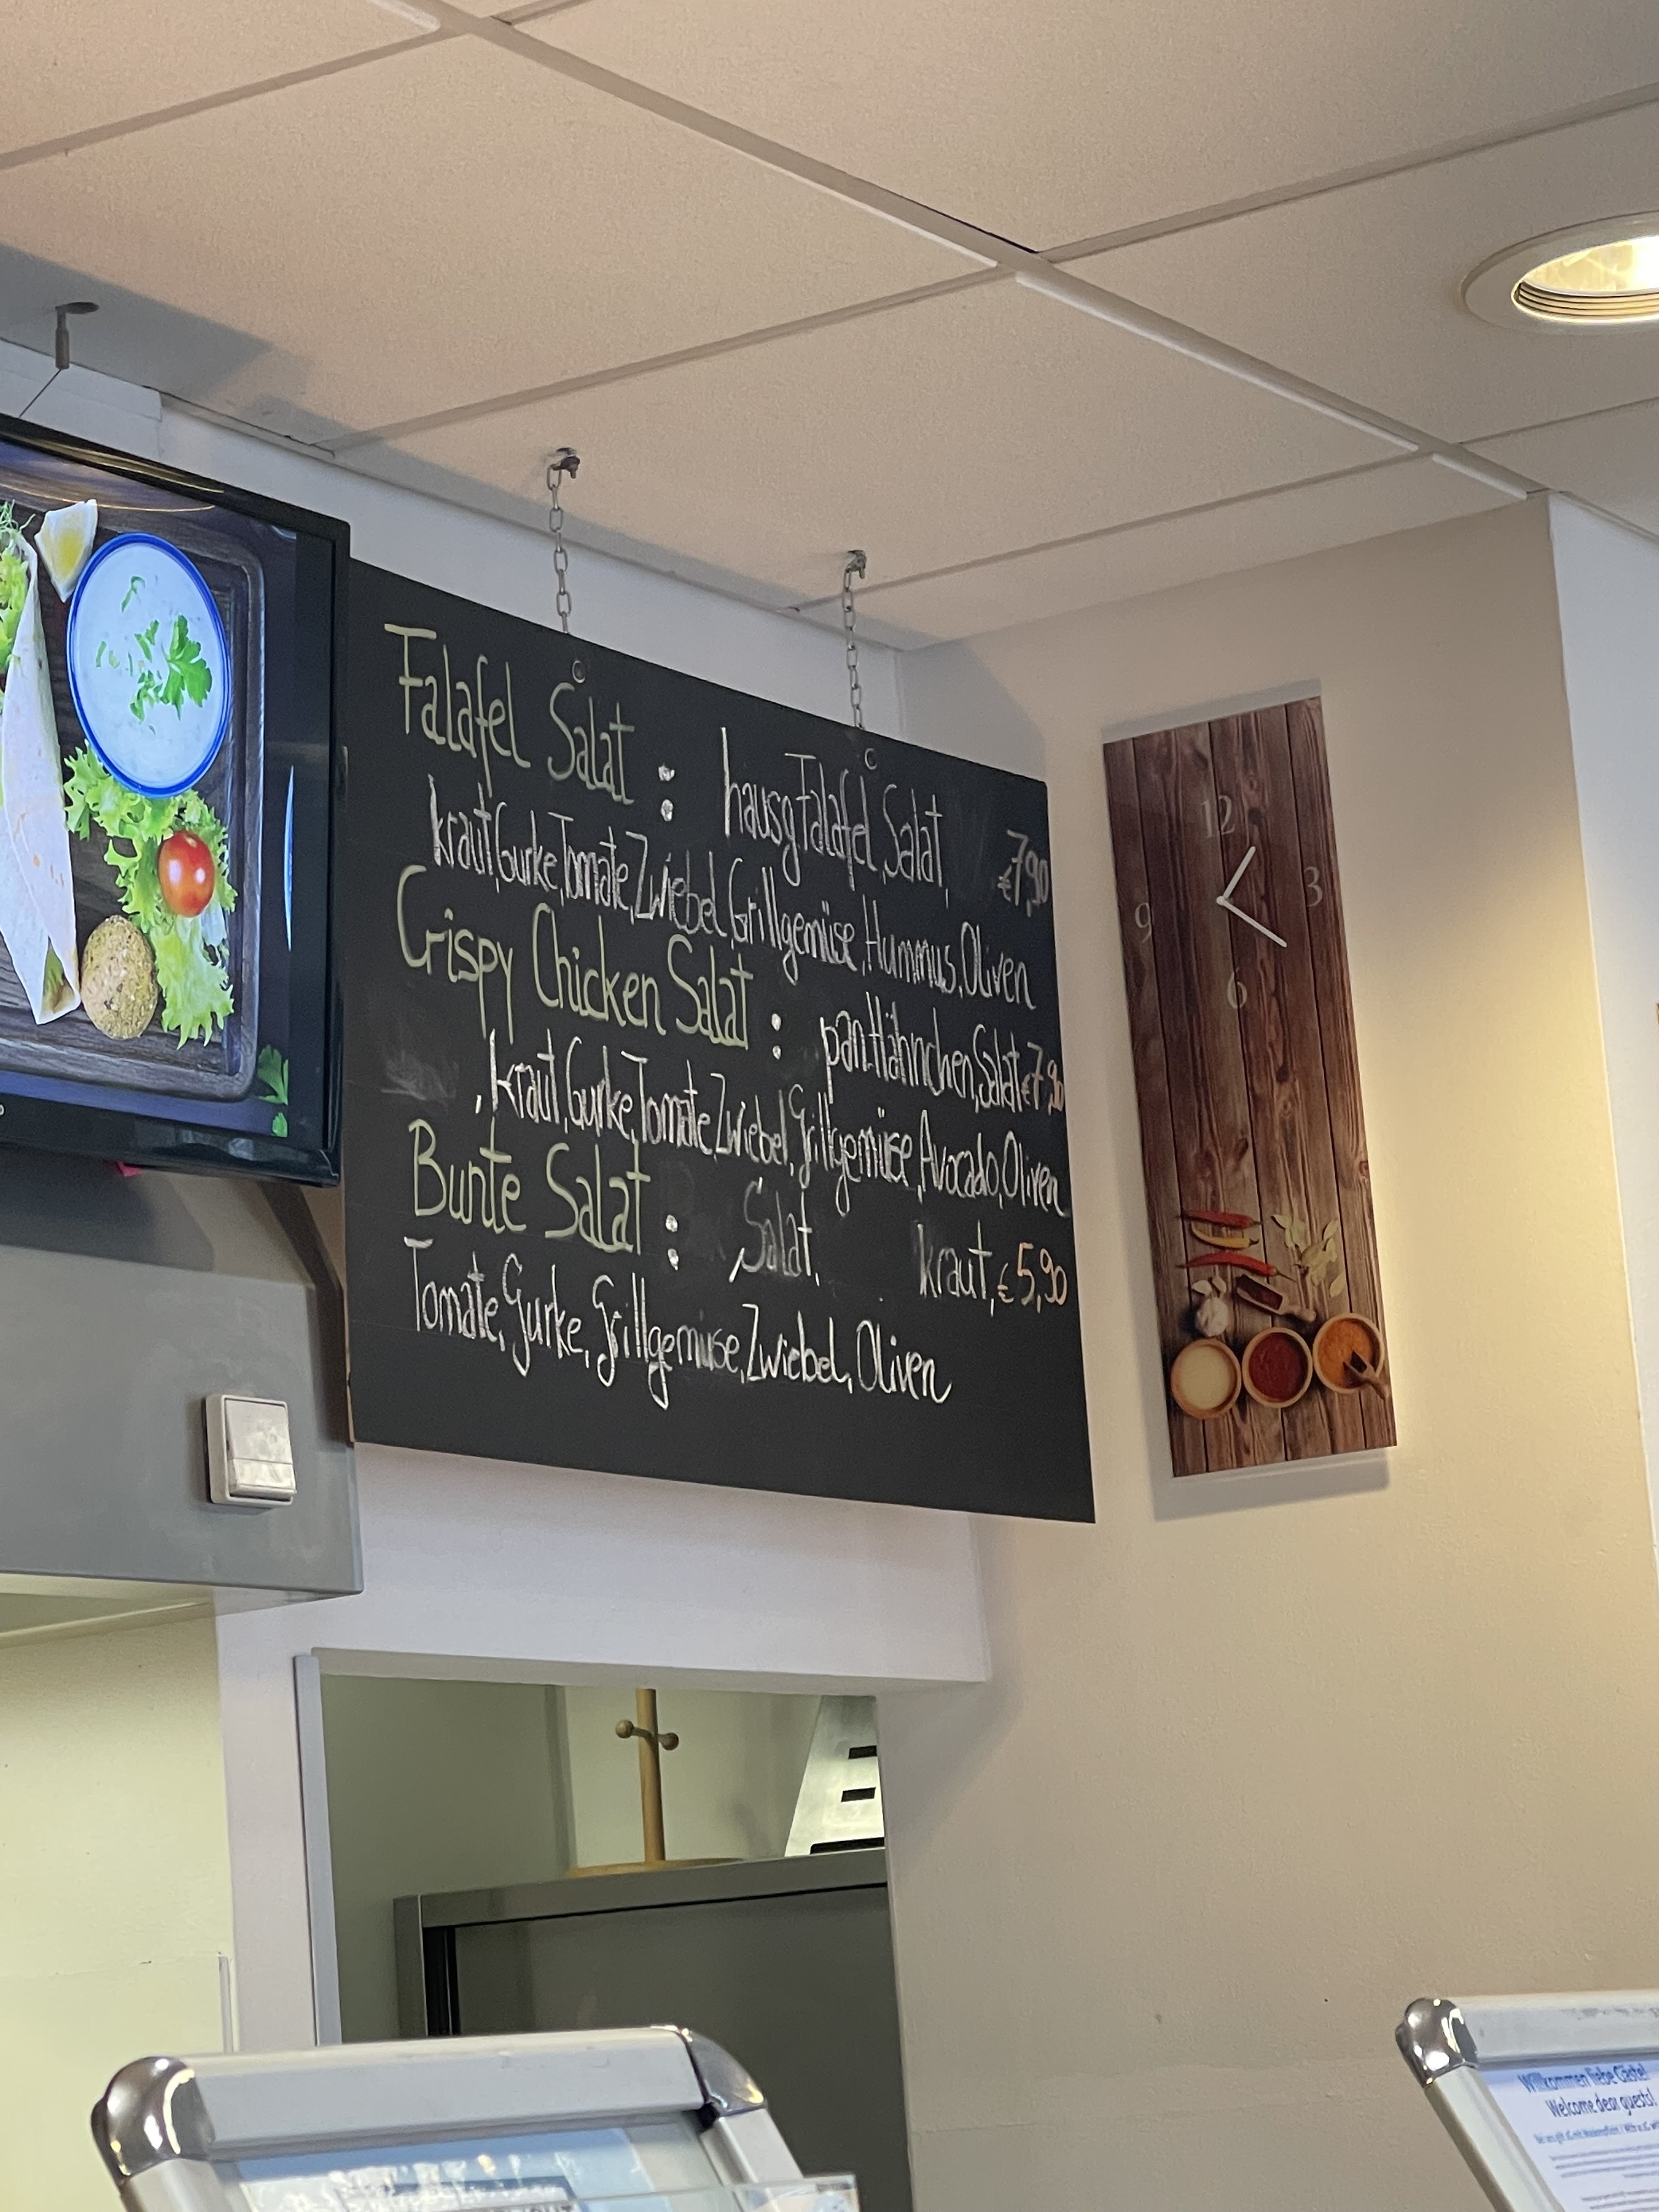 Falafel Salat : hausg.Falafel, Salat, €7,90
kraut, Gurke, Tomate, Zwiebel, Grillgemüse, Hummus, Oliven
Crispy Chicken Salat : pan.Hähnchen, Salat €7,90
, kraut, Gurke, Tomate, Zwiebel, Grillgemüse, Avocado, Oliven
Bunte Salat : Salat, kraut, €5,90
Tomate, Gurke, Grillgemüse, Zwiebel, Oliven
12
3
9
6
Willkommen liebe Gäste!
Welcome dear guests!